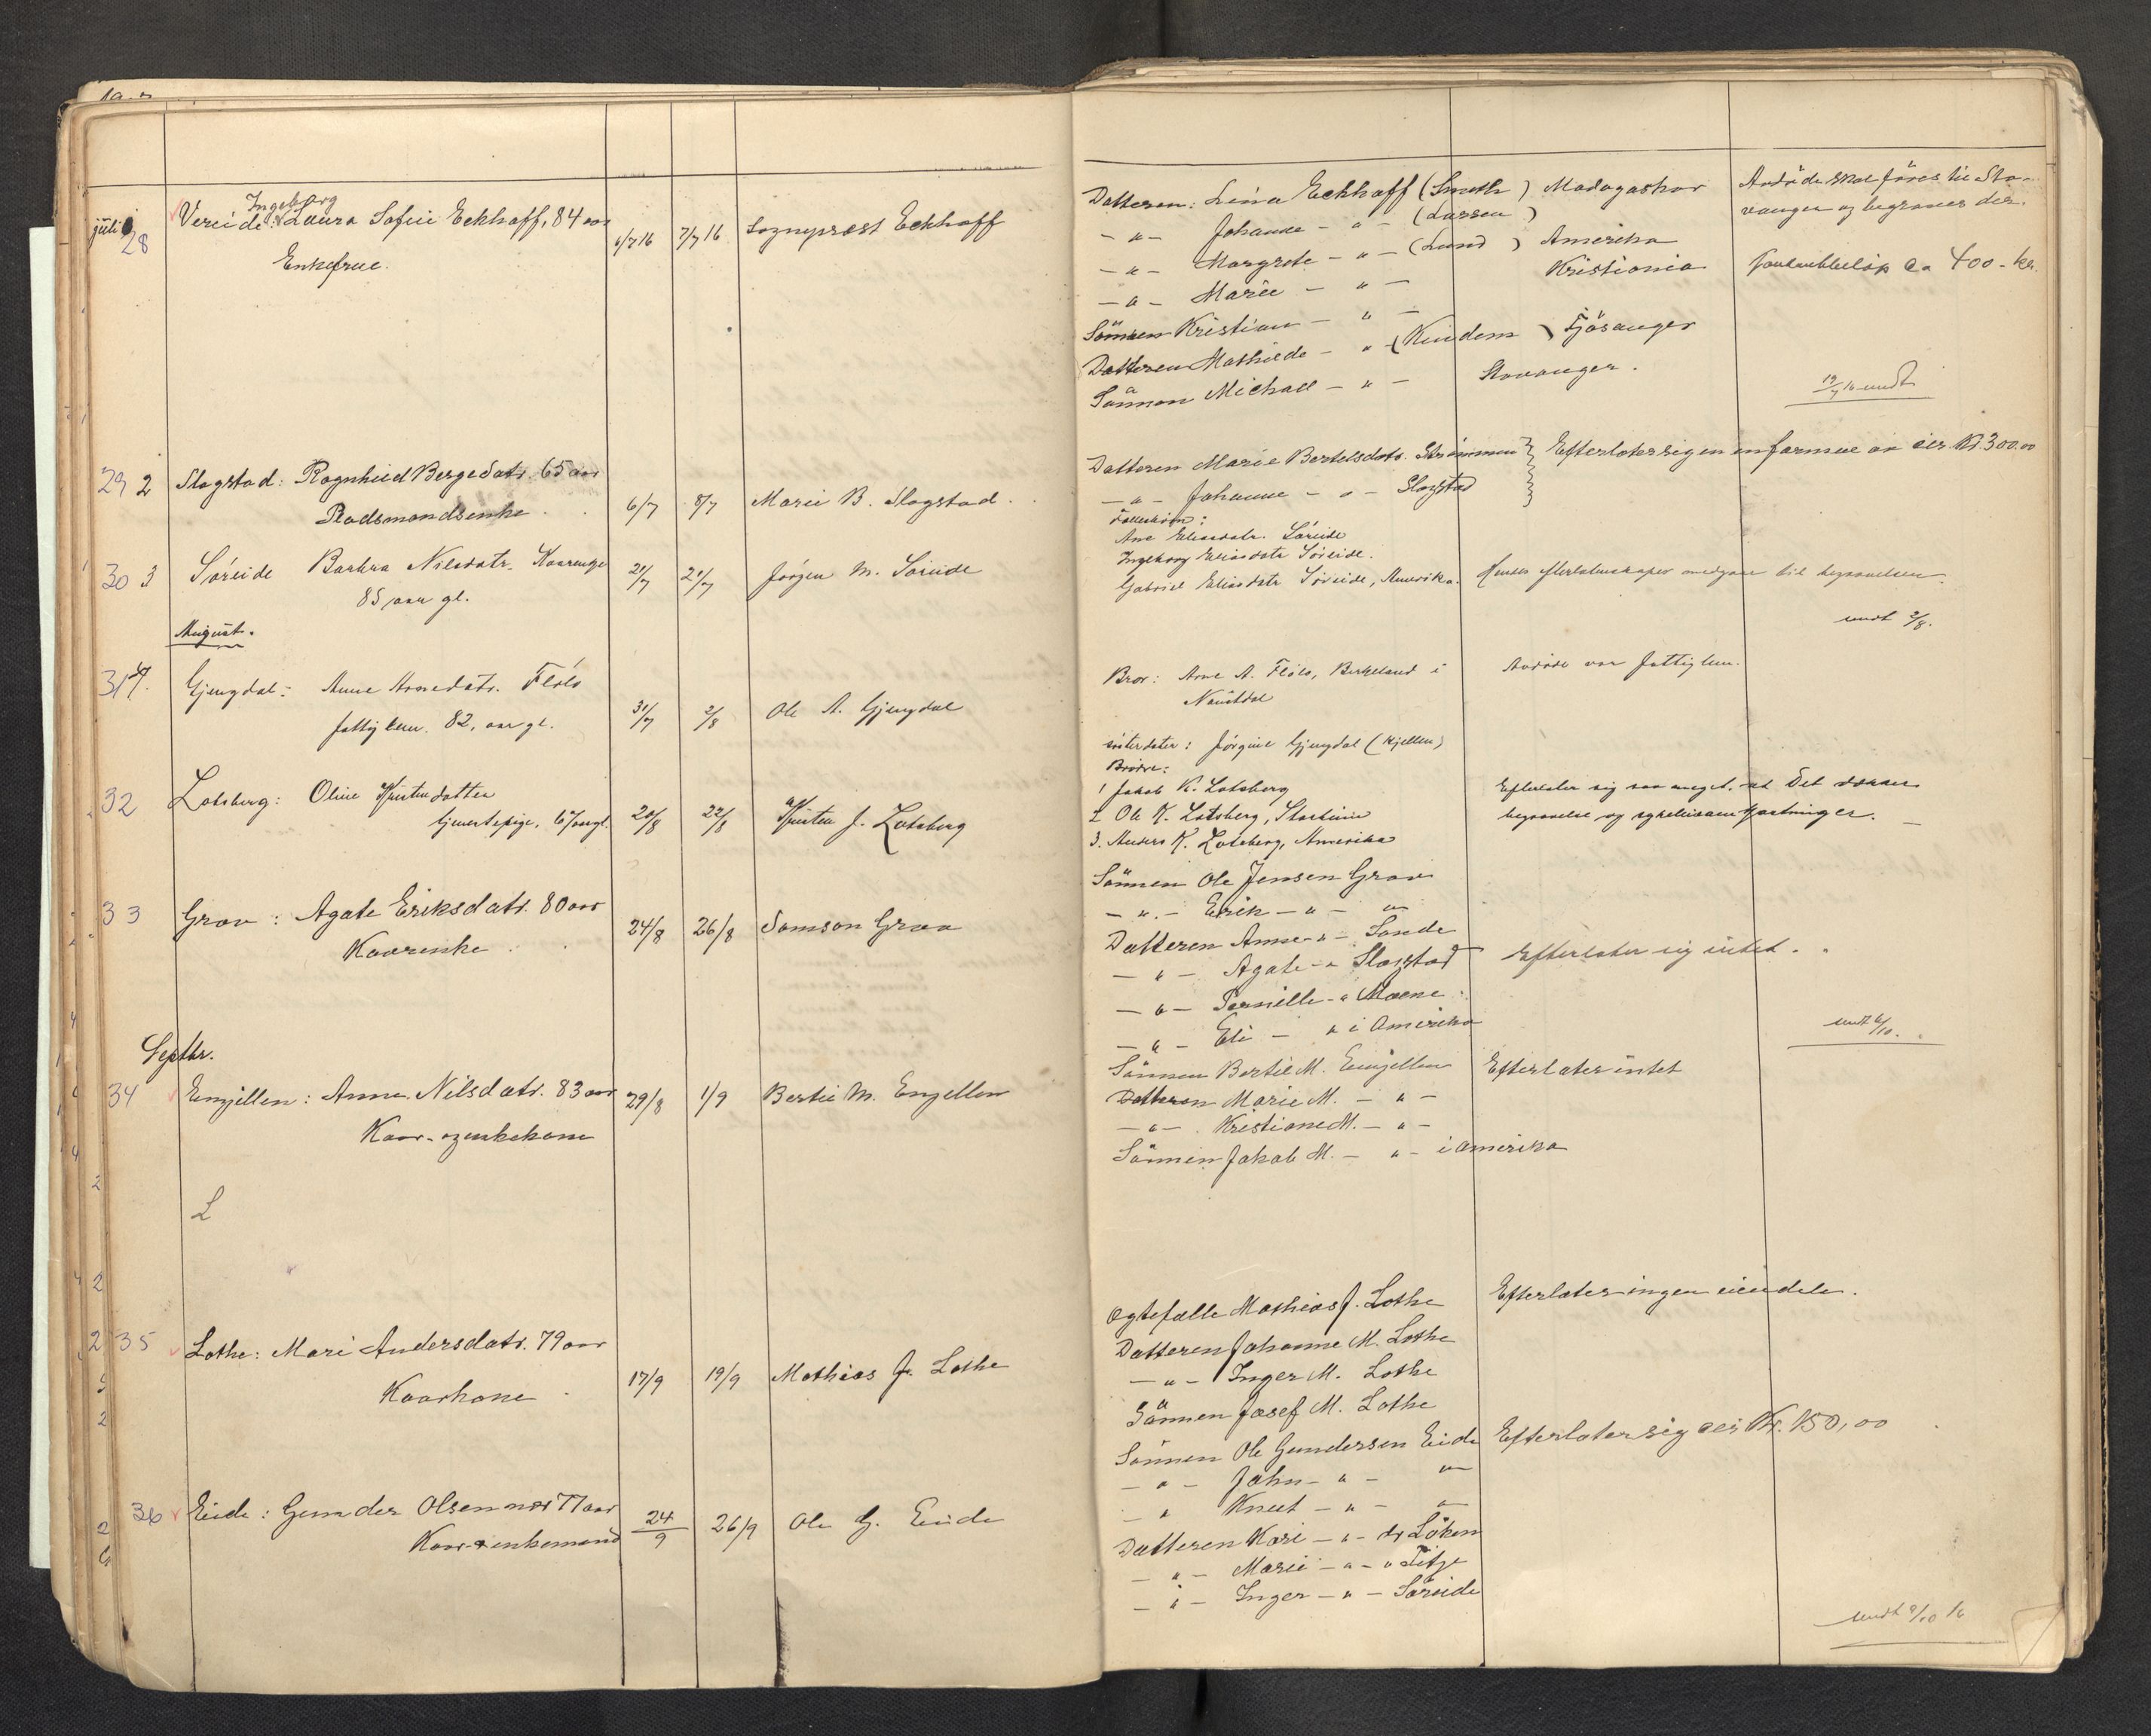 juli
28
Ingeborg
Vereide: Laura Sofie Eckhoff, 84 aar
Enkefrue.
6/7 16
7/7 16
Sogneprest Eckhoff
Datteren: Lina Eckhoff (Smith) Madagaskar
-"- Johanne -"- (Larsen)
-"- Margrete -"- (Lund) Amerika
-"- Marie -"- Kristiania
Sönnen Kristian -"-
Datteren Mathilde -"- (Kindem) Fjösanger
Sönnen Michael -"- Stavanger.
Avdöde skal föres til Sta-
vanger og begraves der.
ca 400 - kr.
19/7 16 undt
29 2
Slagstad: Ragnhild Bergesdatr. 65 aar
Raadsmandsenke
6/7
8/7
Marie B. Slagstad.
Datteren Marie Bertelsdatr. Strömmen
-"- Johanne -"- Slagstad
Efterlater sig en formue av cir. Kr 300.00
30 3
Söreide Barbra Nilsdatr.
85 aar gl.
21/7
Jörgen M. Söreide
Ane Eliasdatr. Söreide
Ingeborg Eliasdatr Söreide.
Gabriel Eliasdatr Söreide, Amerika.
Hendes efterladenskaper medgaar til begravelsen.
undt 2/8.
August.
31 4.
Gjengdal: Anne Arnedatr. Flölo
fattiglem. 82, aar gl.
31/7
2/8
Ole A. Gjengdal
Bror: Arne A. Flölo, Birkeland i
Naustdal
Avdöde var fattiglem.
Sösterdater: Jörgine Gjengdal (Hjellen)
32
Lotsberg: Oline Kristendatter
6 aar gl.
20/8
22/8
Kristen J. Lotsberg
Brödre:
1 Jakob K. Lotsberg
2 Ole K. Lotsberg, Starheim
3. Anders K. Lotsberg, Amerika
Efterlater sig saa meget, at det dækker
begravelse og sykehusomkostninger.
33
Grav: Agate Eriksdatr. 80 aar
Kaarenke
24/8
26/8
Samson Grav
Sönnen Ole Jensen Grav
-"- Erik -"- "
Datteren Anne -"- Sande
-"- Agate -"- Slagstad
-"- Pernille -"- Moene
-"- Eli - " i Amerika
Efterlater sig intet.
undt 6/10.
Septbr.
34
Emjellen: Anne Nilsdatr. 83 aar
Kaar- og enkekone
29/8
1/9
Bertil M. Emjellen
Sönnen Bertil M. Emjellen
Datteren Marie M. -"-
-"- Kristiane M. -"-
Sönnen Jakob M. -"- i Amerika
Efterlater intet
L
35
Lothe: Mari Andersdatr. 79 aar
Kaarkone
17/9
19/9
Mathias J. Lothe
Ogtefælle Mathias J. Lothe
Datteren Johanne M. Lothe
-"- Inger M. Lothe
Sönnen Josef M. Lothe
Efterlater ingen eiendele.
36
Eide: Gunder Olsen 77 aar
Kaar- enkemand
24/9
26/9
Ole G. Eide
Sönnen Ole Gundersen Eide
-"- John -"- "
" Knut -"- "
Datteren Kari -"- Löken
-"- Marie -"-
-"- Inger -"- Söreide
Efterlater sig cir Kr. 150,00
undt 9/10 16